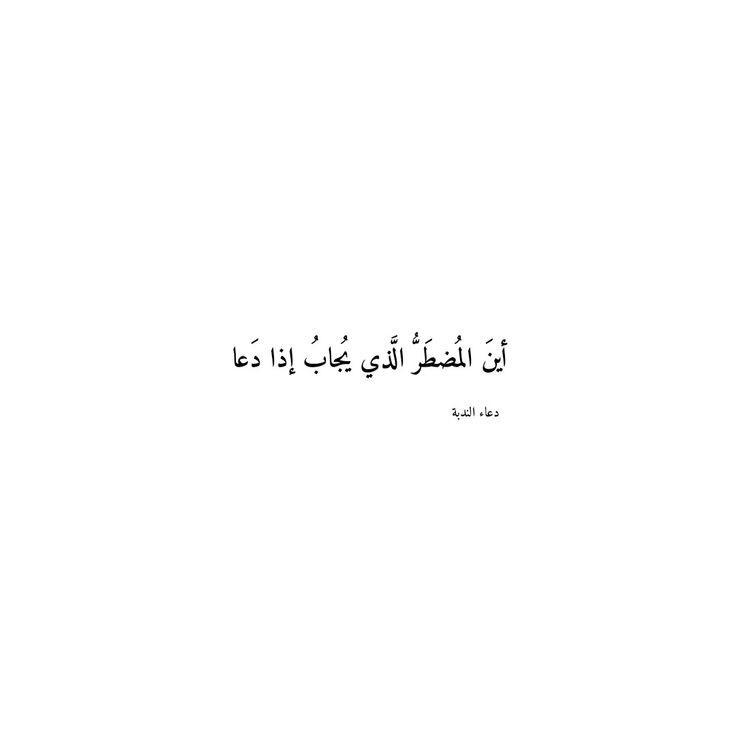 أينَ المُضطَرُّ الَّذي يُجابُ إذا دَعا
دعاء الندبة